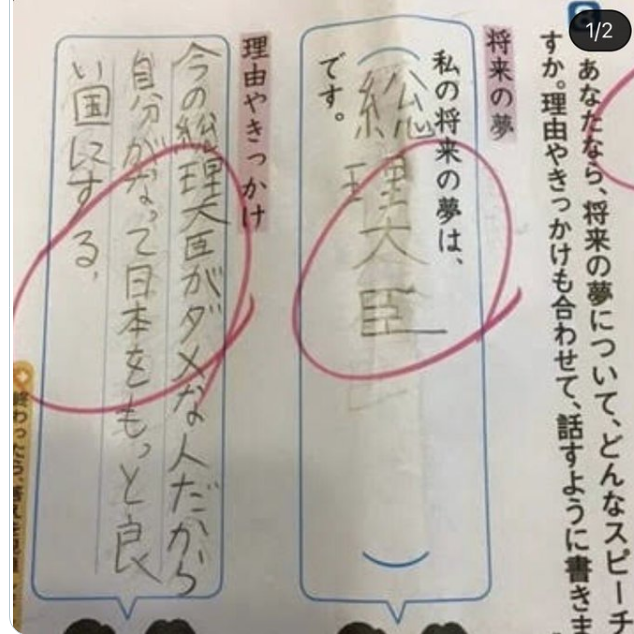 1/2
あなたなら、将来の夢について、どんなスピーチ
すか。理由やきっかけも合わせて、話すように書きま
将来の夢
私の将来の夢は、
総理大臣
です。
理由やきっかけ
今の総理大臣がダメな人だから
自分がなって日本をもっと良
い国にする。
終わったら、答えを見直し